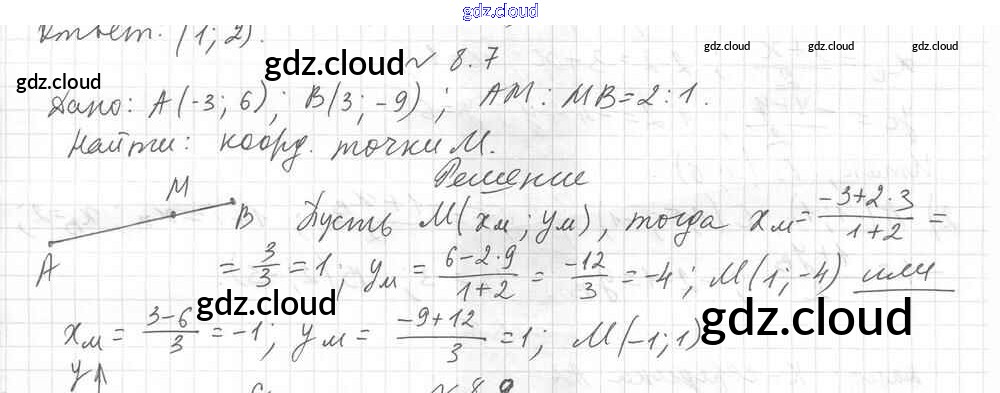 gdz.cloud
Ответ: (1; 2).
№ 8.7
gdz.cloud
gdz.cloud
gdz.cloud
gdz.cloud
Дано: A(-3; 6); B(3; -9); AM : MB = 2 : 1.
Найти: коорд. точки M.
Решение
M
B
A
Пусть M(xм; yм), тогда xм = (-3+2·3)/(1+2) =
= 3/3 = 1; yм = (6-2·9)/(1+2) = -12/3 = -4; M(1; -4) или
gdz.cloud
gdz.cloud
xм = (3-6)/3 = -1; yм = (-9+12)/3 = 1; M(-1; 1)
y